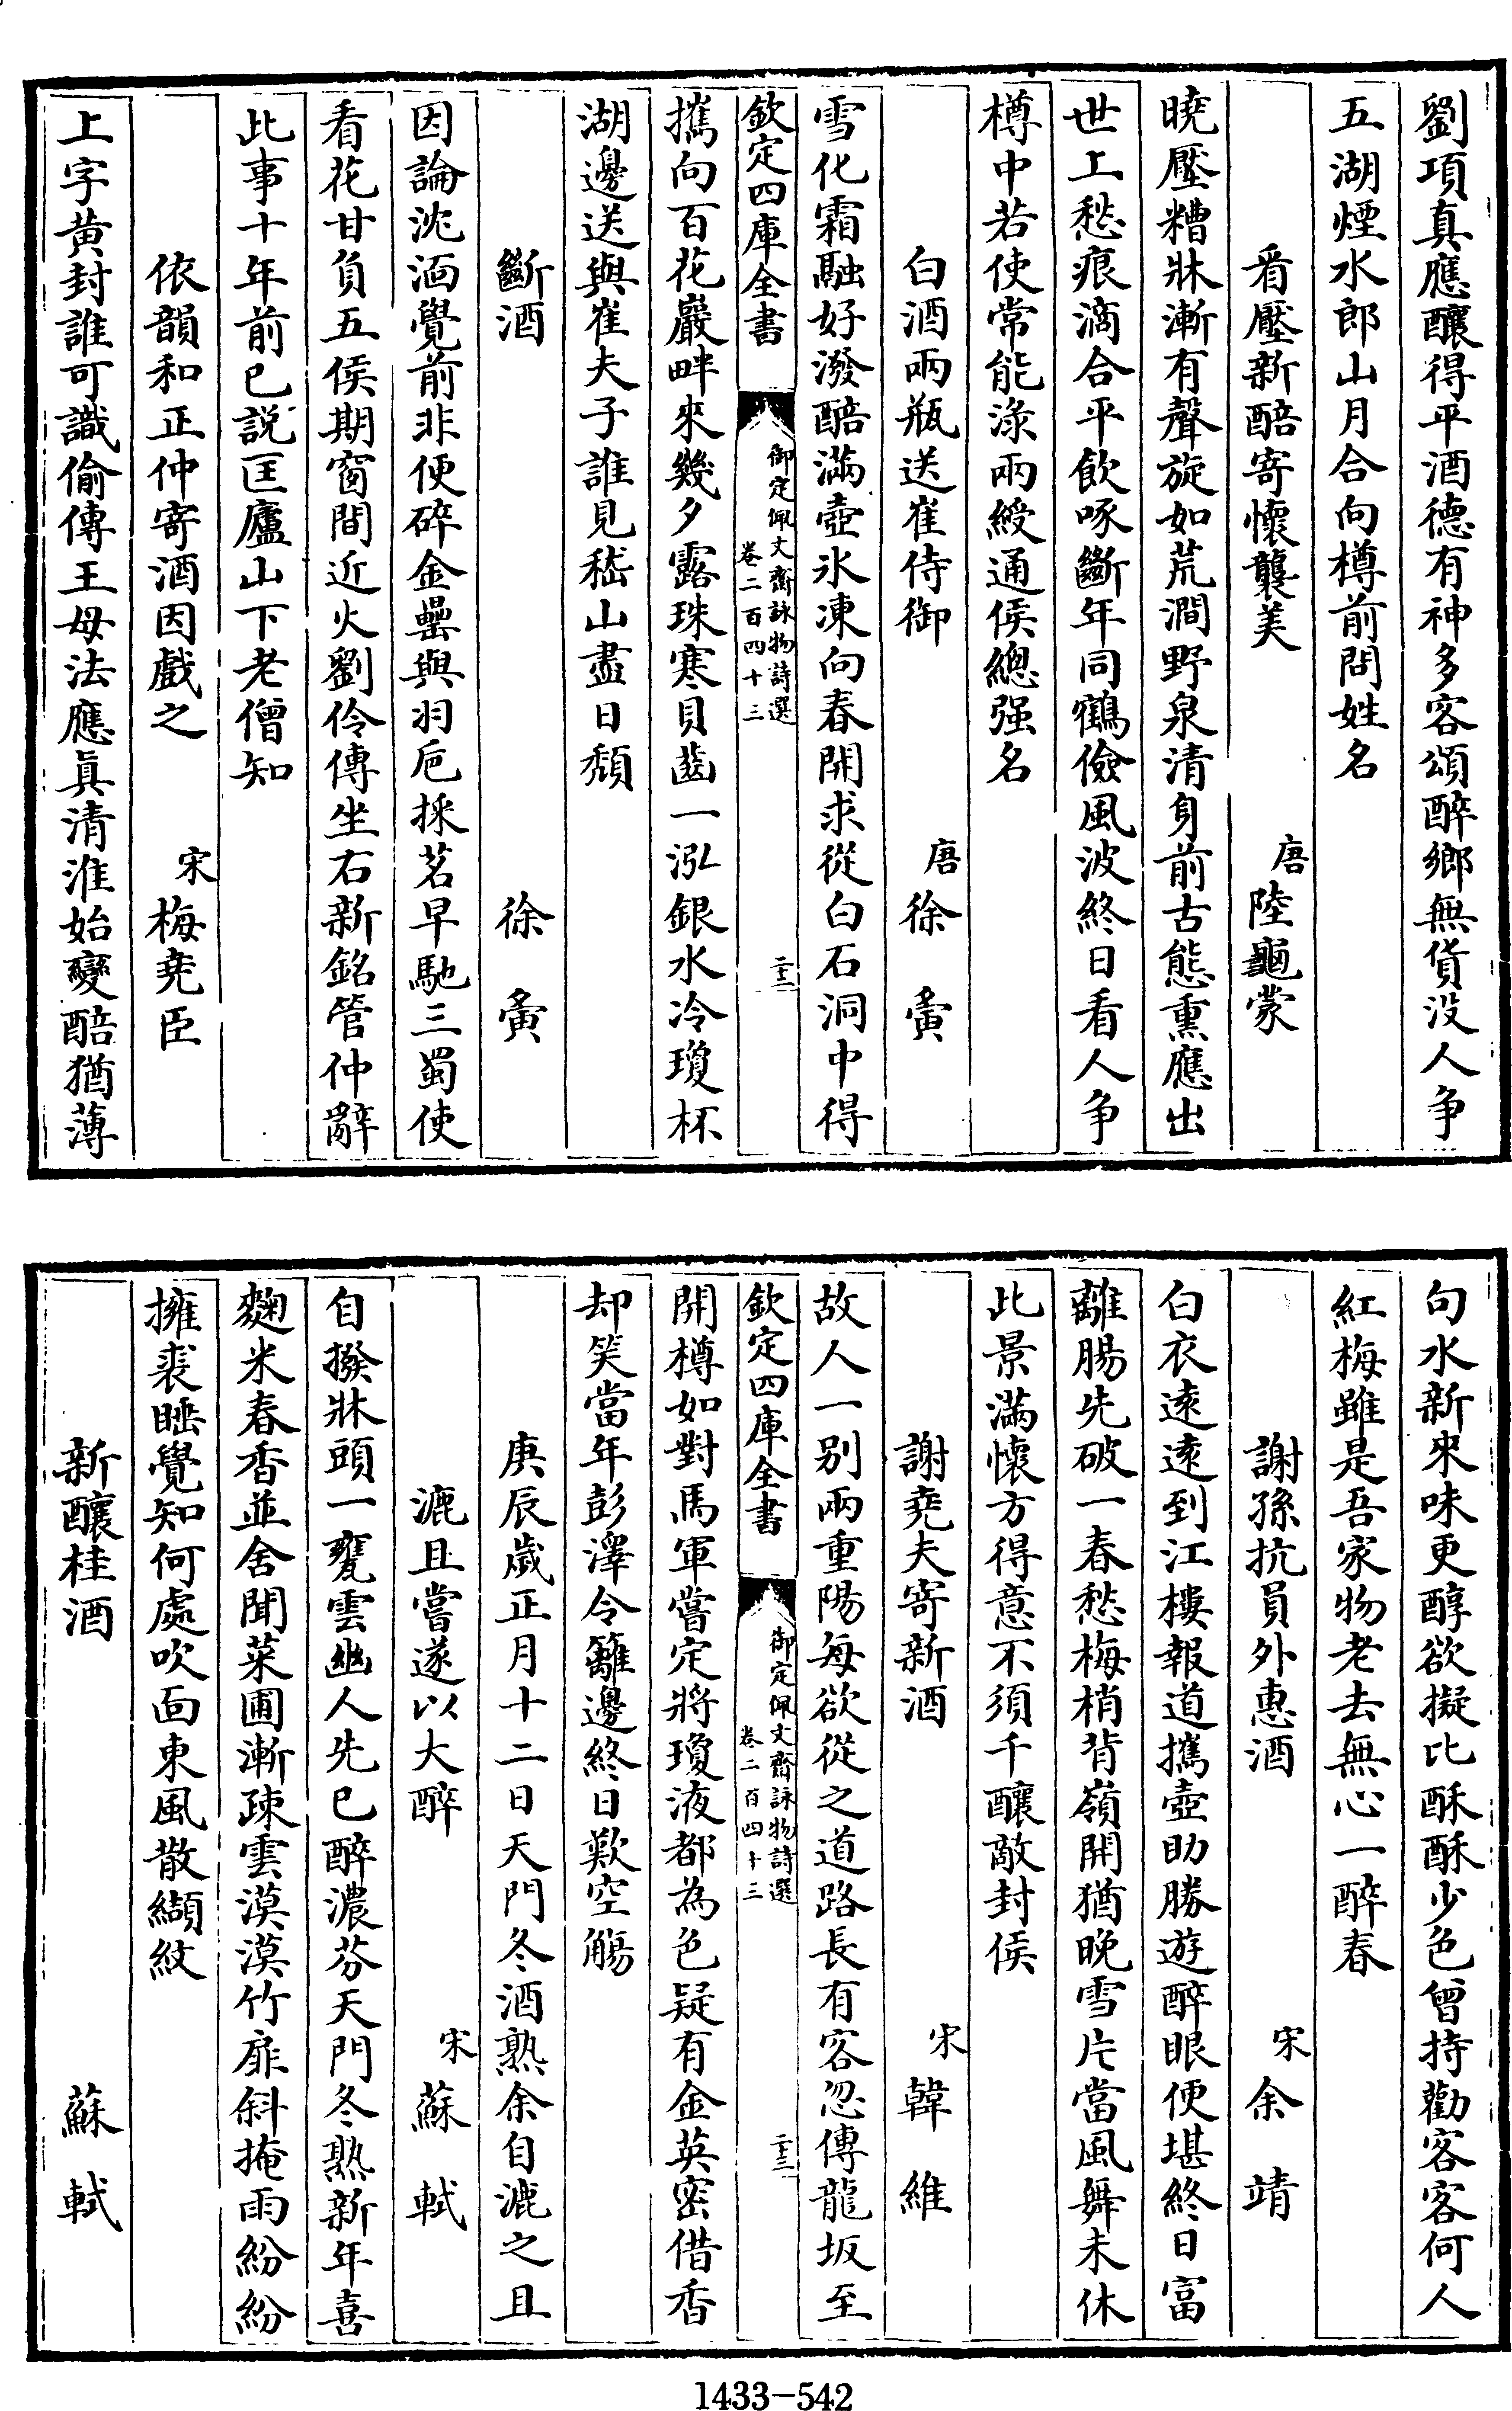 劉項真應釀得平酒德有神多客頌醉鄉無貨沒人争
五湖煙水郎山月合向樽前問姓名
看壓新醅寄懷襲美 唐陸龜蒙
曉壓糟牀漸有聲旋如荒澗野泉清身前古態熏應出
世上愁痕滴合平飲啄斷年同鶴儉風波終日看人争
樽中若使常能渌兩綬通侯總强名
白酒兩瓶送崔侍御 唐徐夤
雪化霜融好潑醅滿壺氷凍向春開求從白石洞中得
欽定四庫全書 御定佩文齋詠物詩選 卷二百四十三 二十二
攜向百花巖畔來幾夕露珠寒貝齒一泓銀水冷瓊杯
湖邊送與崔夫子誰見嵇山盡日頹
斷酒 徐夤
因論沈湎覺前非便碎金罍與羽巵採茗早馳三蜀使
看花甘負五侯期窗間近火劉伶傳坐右新銘管仲辭
此事十年前已説匡廬山下老僧知
依韻和正仲寄酒因戲之 宋梅堯臣
上字黄封誰可識偷傳王母法應眞清淮始變醅猶薄
句水新來味更醇欲擬比酥酥少色曾持勸客客何人
紅梅雖是吾家物老去無心一醉春
謝孫抗員外惠酒 宋余靖
白衣遠遠到江樓報道攜壺助勝遊醉眼便堪終日富
離腸先破一春愁梅梢背嶺開猶晚雪片當風舞未休
此景滿懷方得意不須千釀敵封侯
謝堯夫寄新酒 宋韓維
故人一别兩重陽每欲從之道路長有客忽傳龍坂至
欽定四庫全書 御定佩文齋詠物詩選 卷二百四十三 二十三
開樽如對馬軍嘗定將瓊液都為色疑有金英密借香
却笑當年彭澤令籬邊終日歎空觴
庚辰歲正月十二日天門冬酒熟余自漉之且
漉且嘗遂以大醉 宋蘇軾
自撥牀頭一甕雲幽人先已醉濃芬天門冬熟新年喜
麴米春香並舍聞菜圃漸疎雲漠漠竹扉斜掩雨紛紛
擁裘睡覺知何處吹面東風散纈紋
新釀桂酒 蘇軾
1433-542